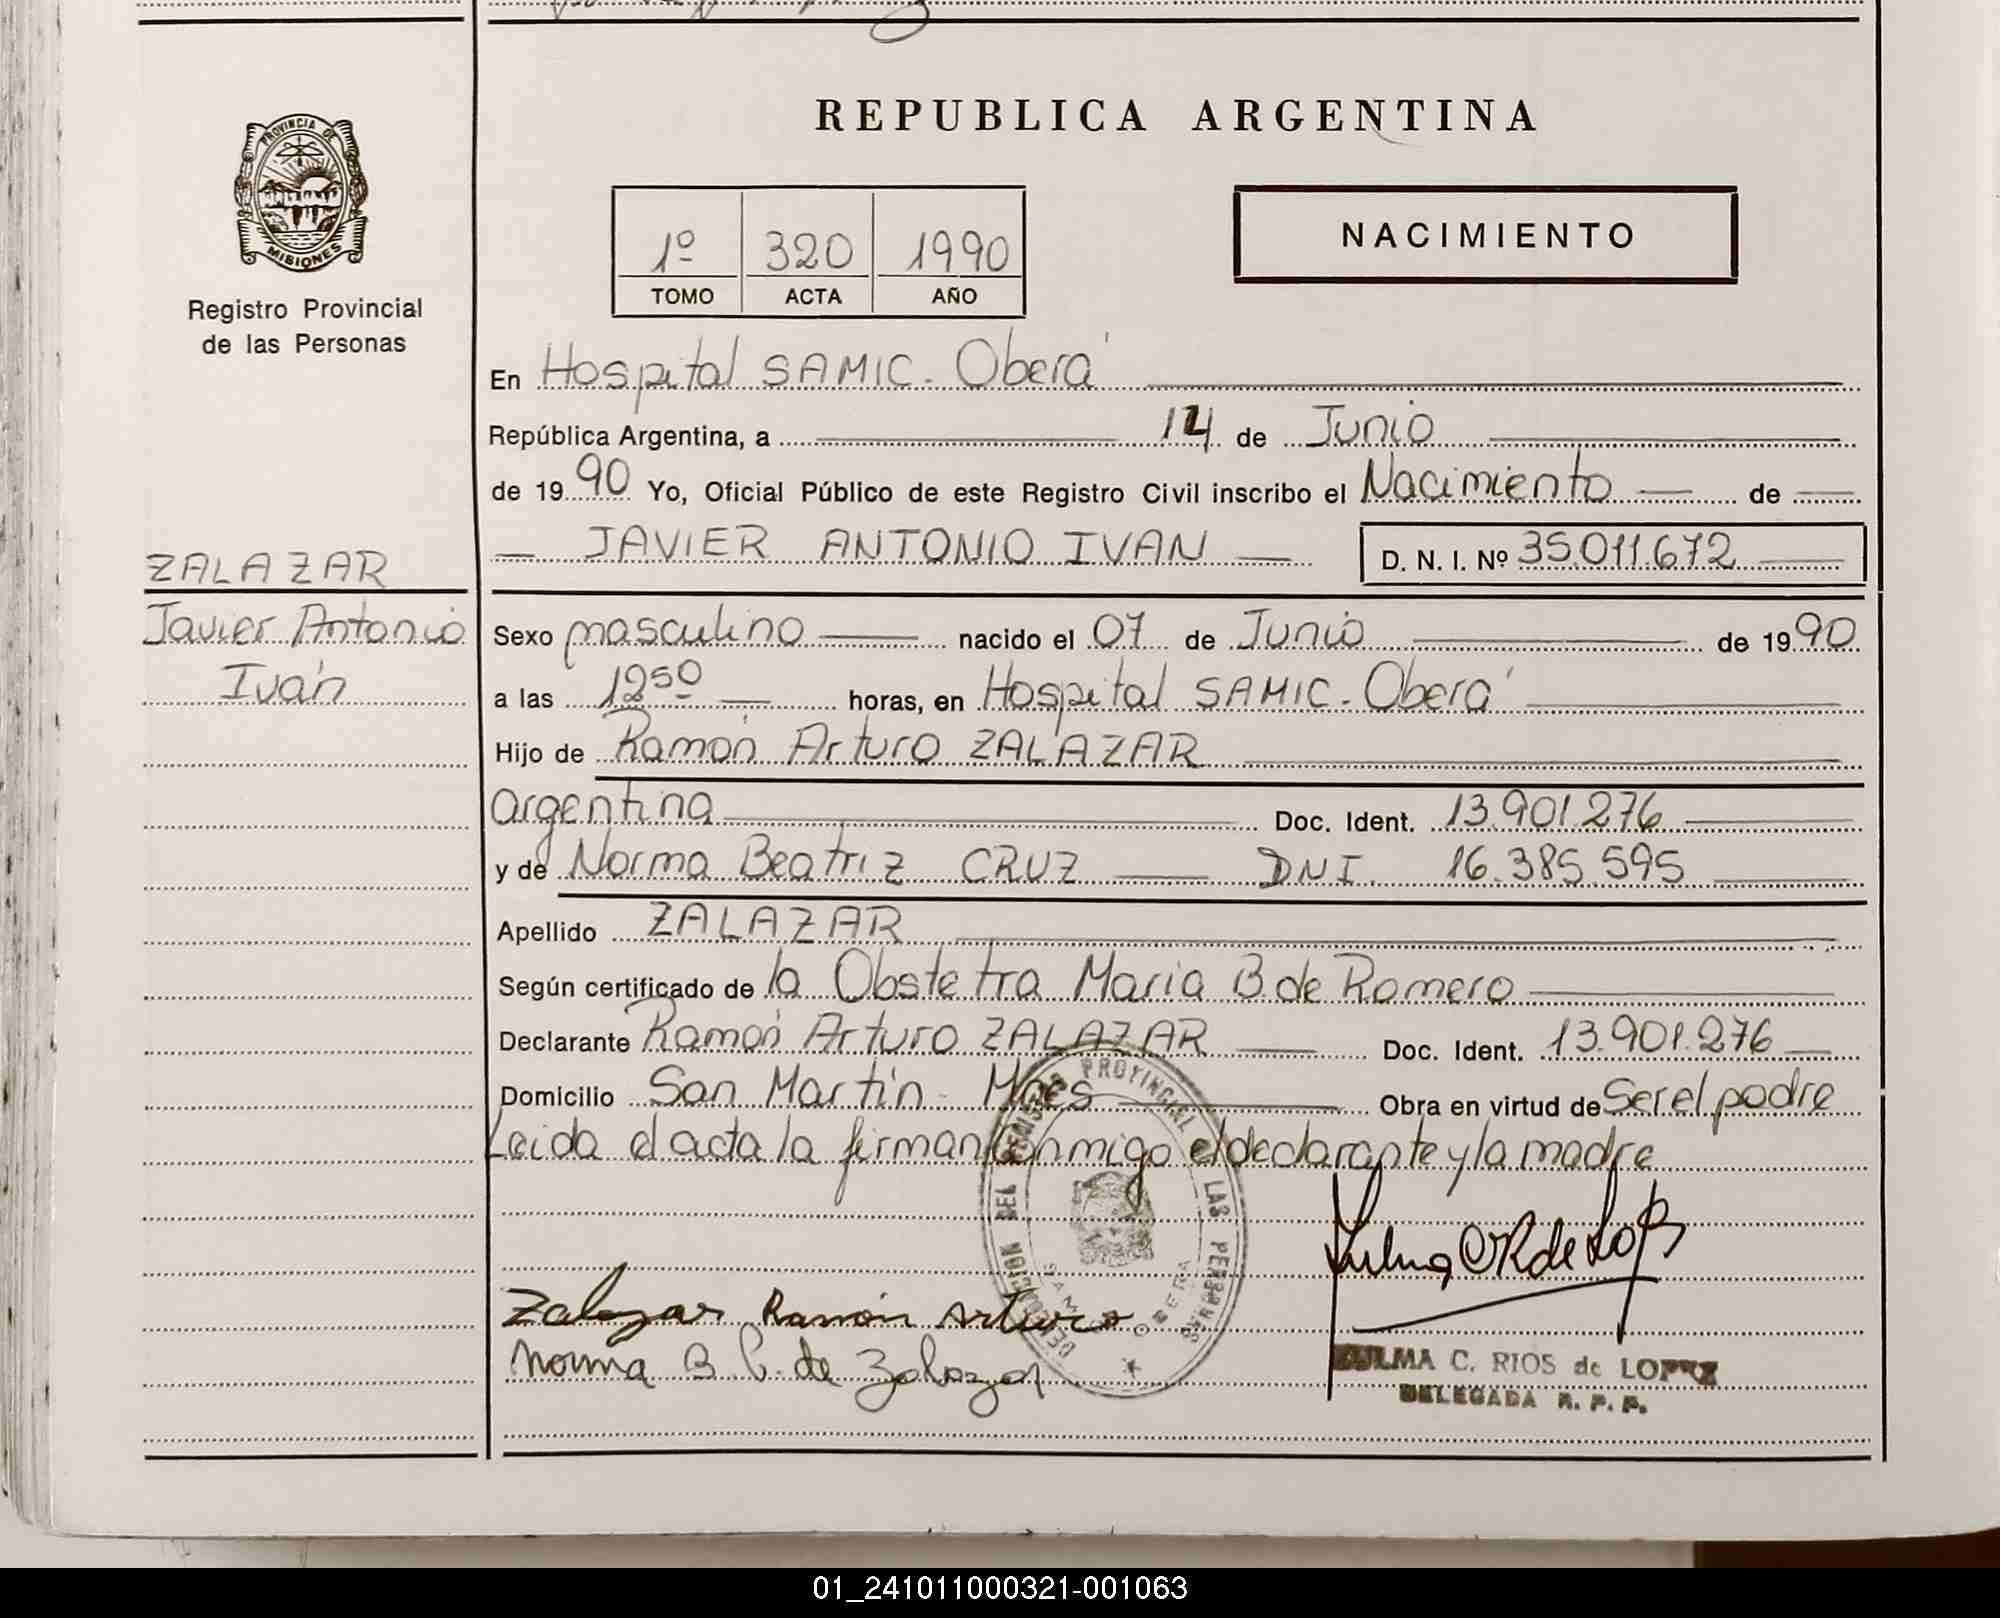 REPUBLICA ARGENTINA
PROVINCIA DE MISIONES
Registro Provincial
de las Personas
1º 320 1990
TOMO ACTA AÑO
NACIMIENTO
En Hospital SAMIC - Oberá
República Argentina, a 14 de Junio
de 1990 Yo, Oficial Público de este Registro Civil inscribo el Nacimiento de
JAVIER ANTONIO IVAN D. N. I. Nº 35.011.672
ZALAZAR
Javier Antonio
Iván
Sexo masculino nacido el 07 de Junio de 1990
a las 12⁵⁰ horas, en Hospital SAMIC - Oberá
Hijo de Ramón Arturo ZALAZAR
argentina Doc. Ident. 13.901.276
y de Norma Beatriz CRUZ DNI. 16.385.595
Apellido ZALAZAR
Según certificado de la Obstetra Maria B. de Romero
Declarante Ramón Arturo ZALAZAR Doc. Ident. 13.901.276
Domicilio San Martín - Mnes Obra en virtud de Ser el padre
Leida el acta la firman Conmigo el declarante y la madre
DELEGACION DEL REGISTRO PROVINCIAL DE LAS PERSONAS
SAMIC OBERA
Zalazar Ramón Arturo
Norma B. C. de Zalazar
Zulma C R de Lopez
ZULMA C. RIOS de LOPEZ
DELEGADA R. P. P.
01_241011000321-001063